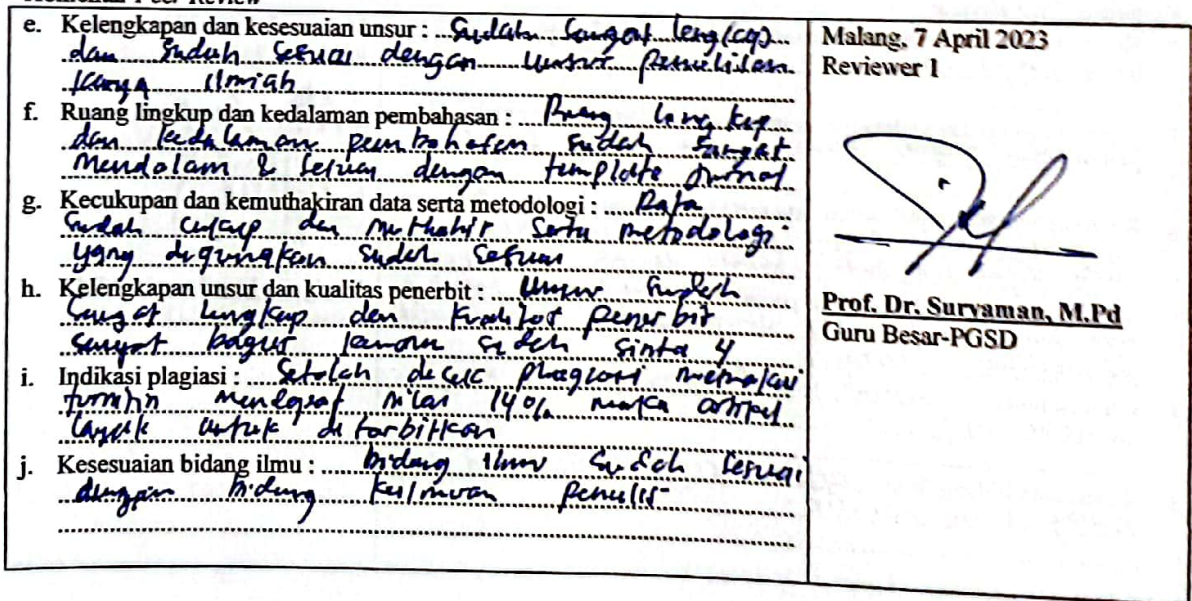 Komentar Peer Review
e. Kelengkapan dan kesesuaian unsur : Sudah sangat lengkap
dan sudah sesuai dengan unsur penulisan
karya ilmiah
f. Ruang lingkup dan kedalaman pembahasan : Ruang lingkup
dan kedalaman pembahasan sudah sangat
mendalam & sesuai dengan template jurnal
g. Kecukupan dan kemuthakiran data serta metodologi : Data
sudah cukup dan muthahir serta metodologi
yang digunakan sudah sesuai
h. Kelengkapan unsur dan kualitas penerbit : Unsur sudah
sangat lengkap dan kualitas penerbit
sangat bagus karena sudah sinta 4
i. Indikasi plagiasi : Setelah di cek plagiasi memakai
turnitin mendapat nilai 14% maka artikel
layak untuk di terbitkan
j. Kesesuaian bidang ilmu : bidang ilmu sudah sesuai
dengan bidang keilmuan penulis
Malang, 7 April 2023
Reviewer 1
Prof. Dr. Suryaman, M.Pd
Guru Besar-PGSD